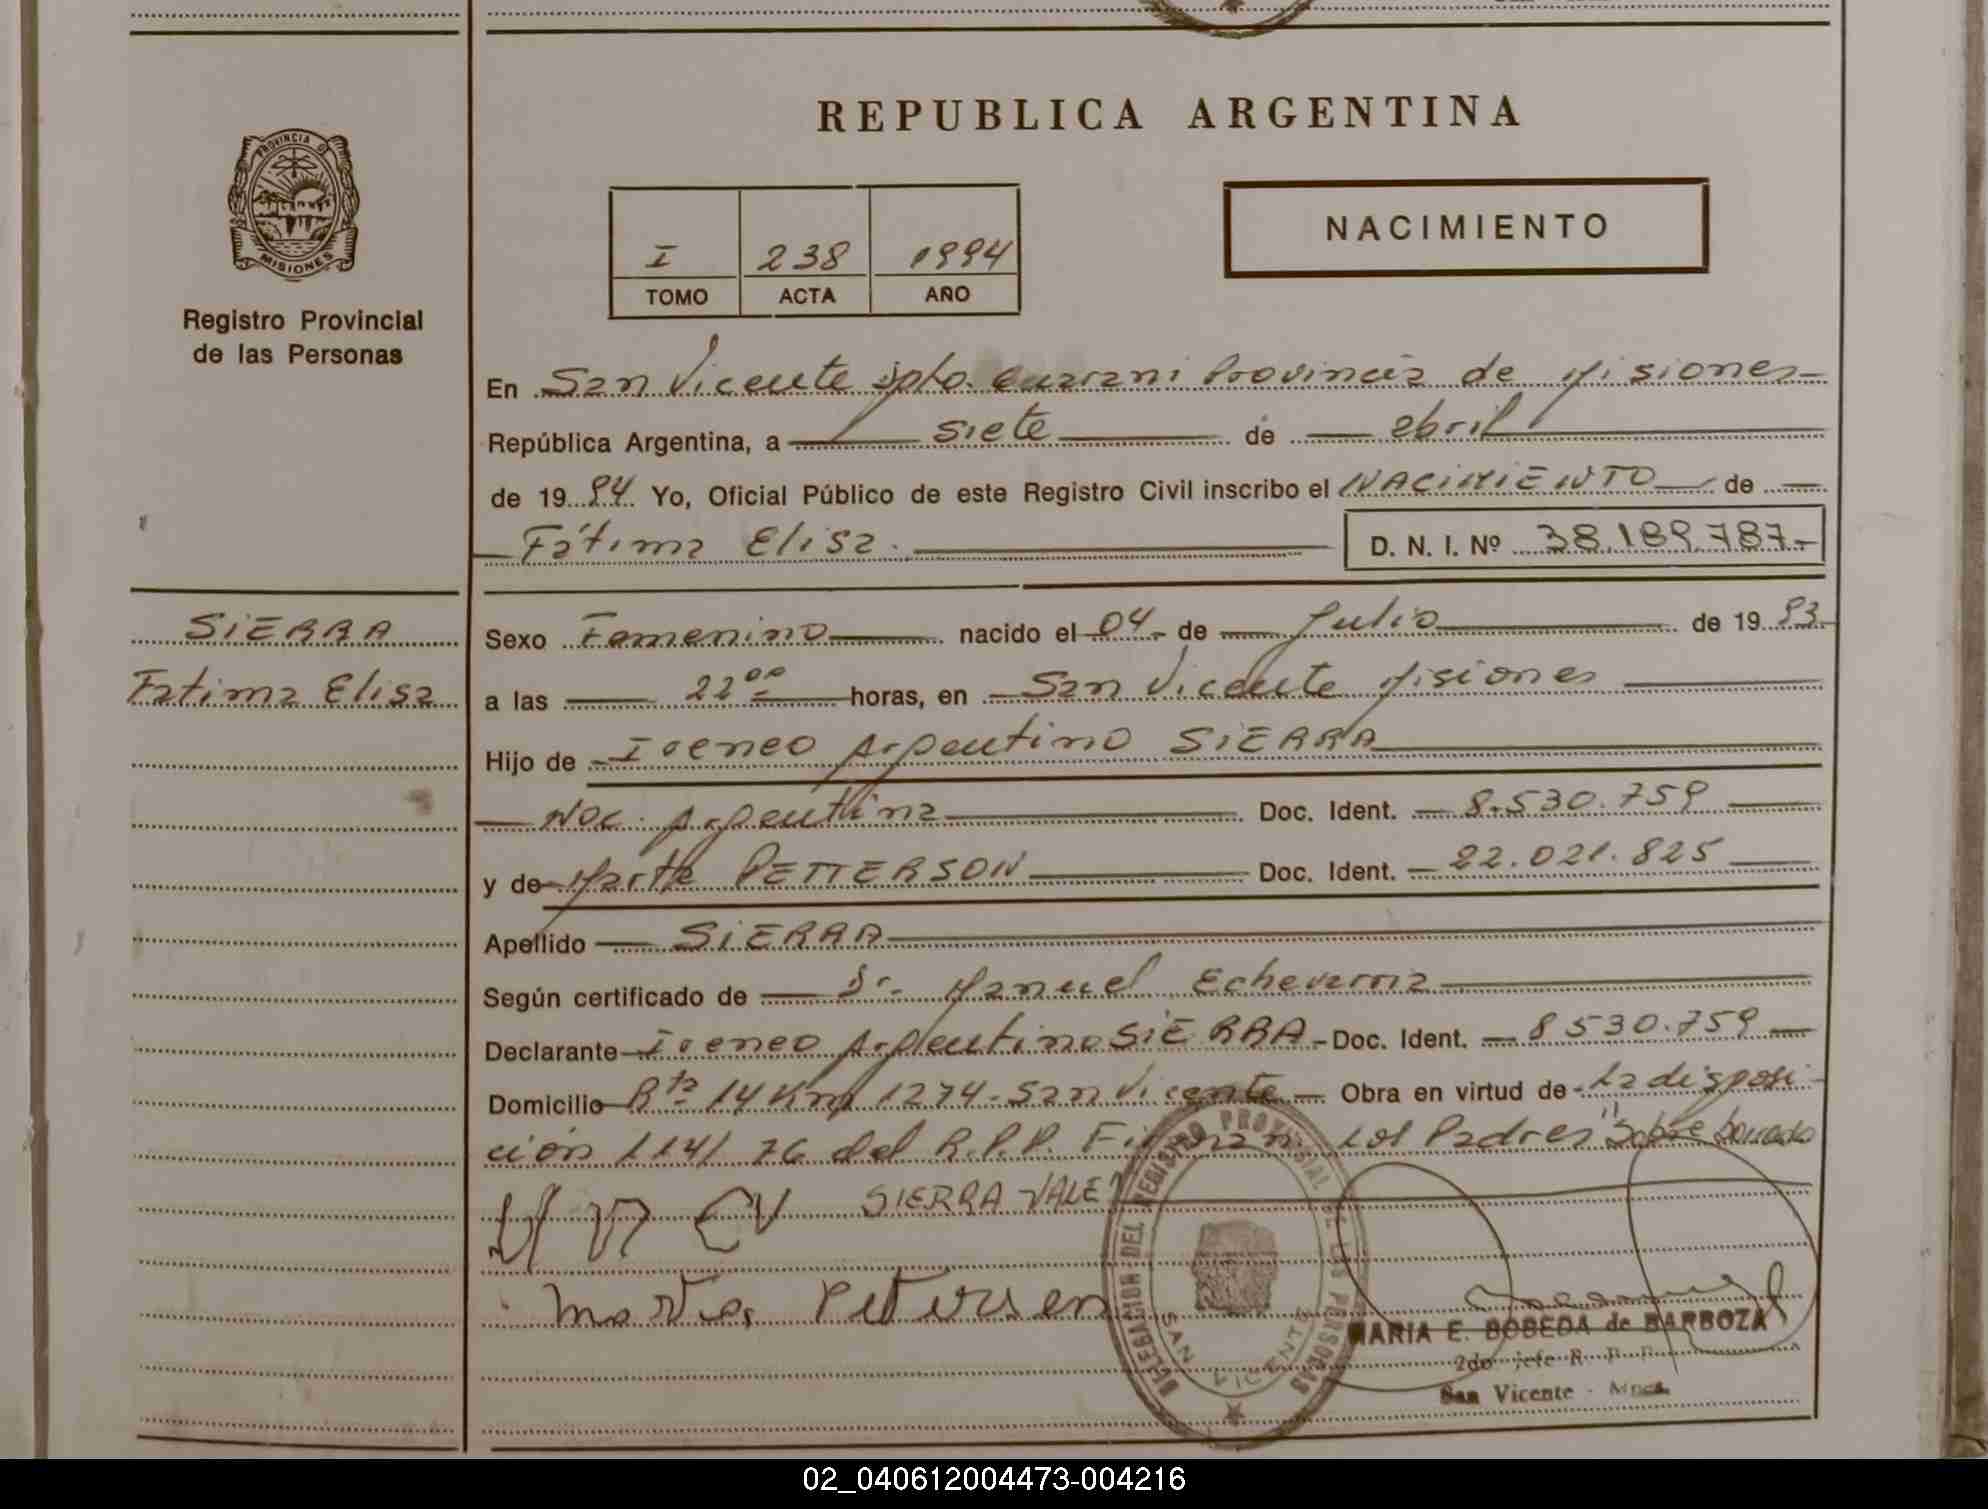 REPUBLICA ARGENTINA
PROVINCIA DE
MISIONES
Registro Provincial
de las Personas
I 238 1994
TOMO ACTA AÑO
NACIMIENTO
En San Vicente Dpto. Guarani Provincia de Misiones
República Argentina, a siete de abril
de 19 94 Yo, Oficial Público de este Registro Civil inscribo el NACIMIENTO de
Fátima Elisa. D. N. I. Nº 38.189.787.-
SiERRA
Fatima Elisa
Sexo Femenino nacido el 04 de Julio de 19 93
a las 22 00 horas, en San Vicente Misiones
Hijo de Ireneo Argentino SiERRA
Nac. Argentina Doc. Ident. 8.530.759
y de Martha PETTERSON Doc. Ident. 22.021.825
Apellido SiERRA
Según certificado de Dr. Manuel Echeverria
Declarante Ireneo Argentino SiERRA - Doc. Ident. 8530.759
Domicilio Rta 14 Km 1274 - San Vicente Obra en virtud de La disposi
ción 114/76 del R.P.P. Firman los Padres "Sobre borrado
SIERRA VALE"
Marta Petersen
DELEGACION DEL REGISTRO PROVINCIAL DE LAS PERSONAS
SAN VICENTE
MARIA E. BOBEDA de BARBOZA
2do jefe R. P. P.
San Vicente - Mnes.
02_040612004473-004216